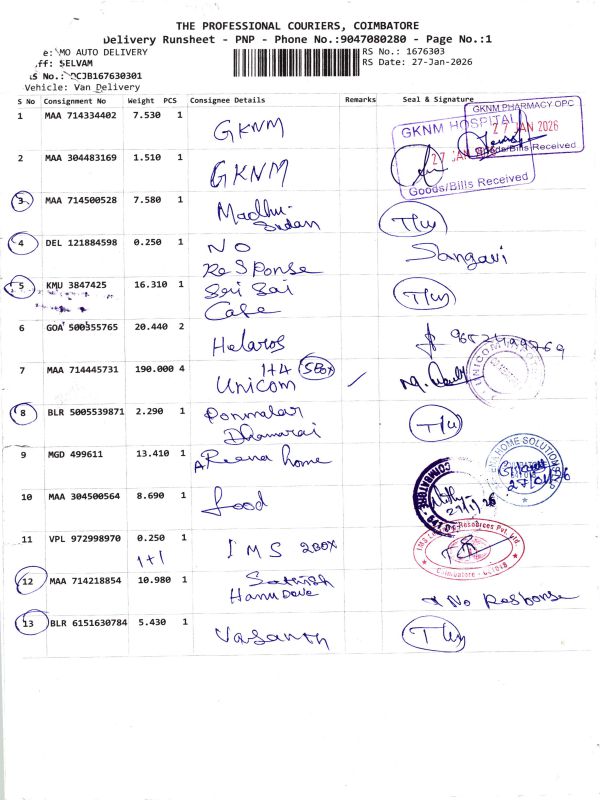 THE PROFESSIONAL COURIERS, COIMBATORE
Delivery Runsheet - PNP - Phone No.:9047080280 - Page No.:1
e: MO AUTO DELIVERY
ff: SELVAM
RS No.: 1676303
RS Date: 27-Jan-2026
Vehicle: Van Delivery
S No Consignment No Weight PCS Consignee Details Remarks Seal & Signature
1 MAA 714334402 7.530 1 GKNM
GKNM HOSPITAL
27 JAN 2026
Goods/Bills Received
GKNM PHARMACY OPC
27 JAN 2026
Goods/Bills Received
2 MAA 304483169 1.510 1 GKNM
3 MAA 714500528 7.580 1 Madhu-
Sudan
4 DEL 121884598 0.250 1 NO
ReSPonse
Sangavi
5 KMU 3847425 16.310 1 Sri Sai
Cafe
6 GOA 500355765 20.440 2
7 MAA 714445731 190.000 4 1+4 5Box
Unicom
8 BLR 5005539871 2.290 1 Ponmalar
9 MGD 499611 13.410 1 Reena home
10 MAA 304500564 8.690 1 food
11 VPL 972998970 0.250 1 IMS 2BOX
1+1
12 MAA 714218854 10.980 1 Sathish
No Response
13 BLR 6151630784 5.430 1 Vasanth